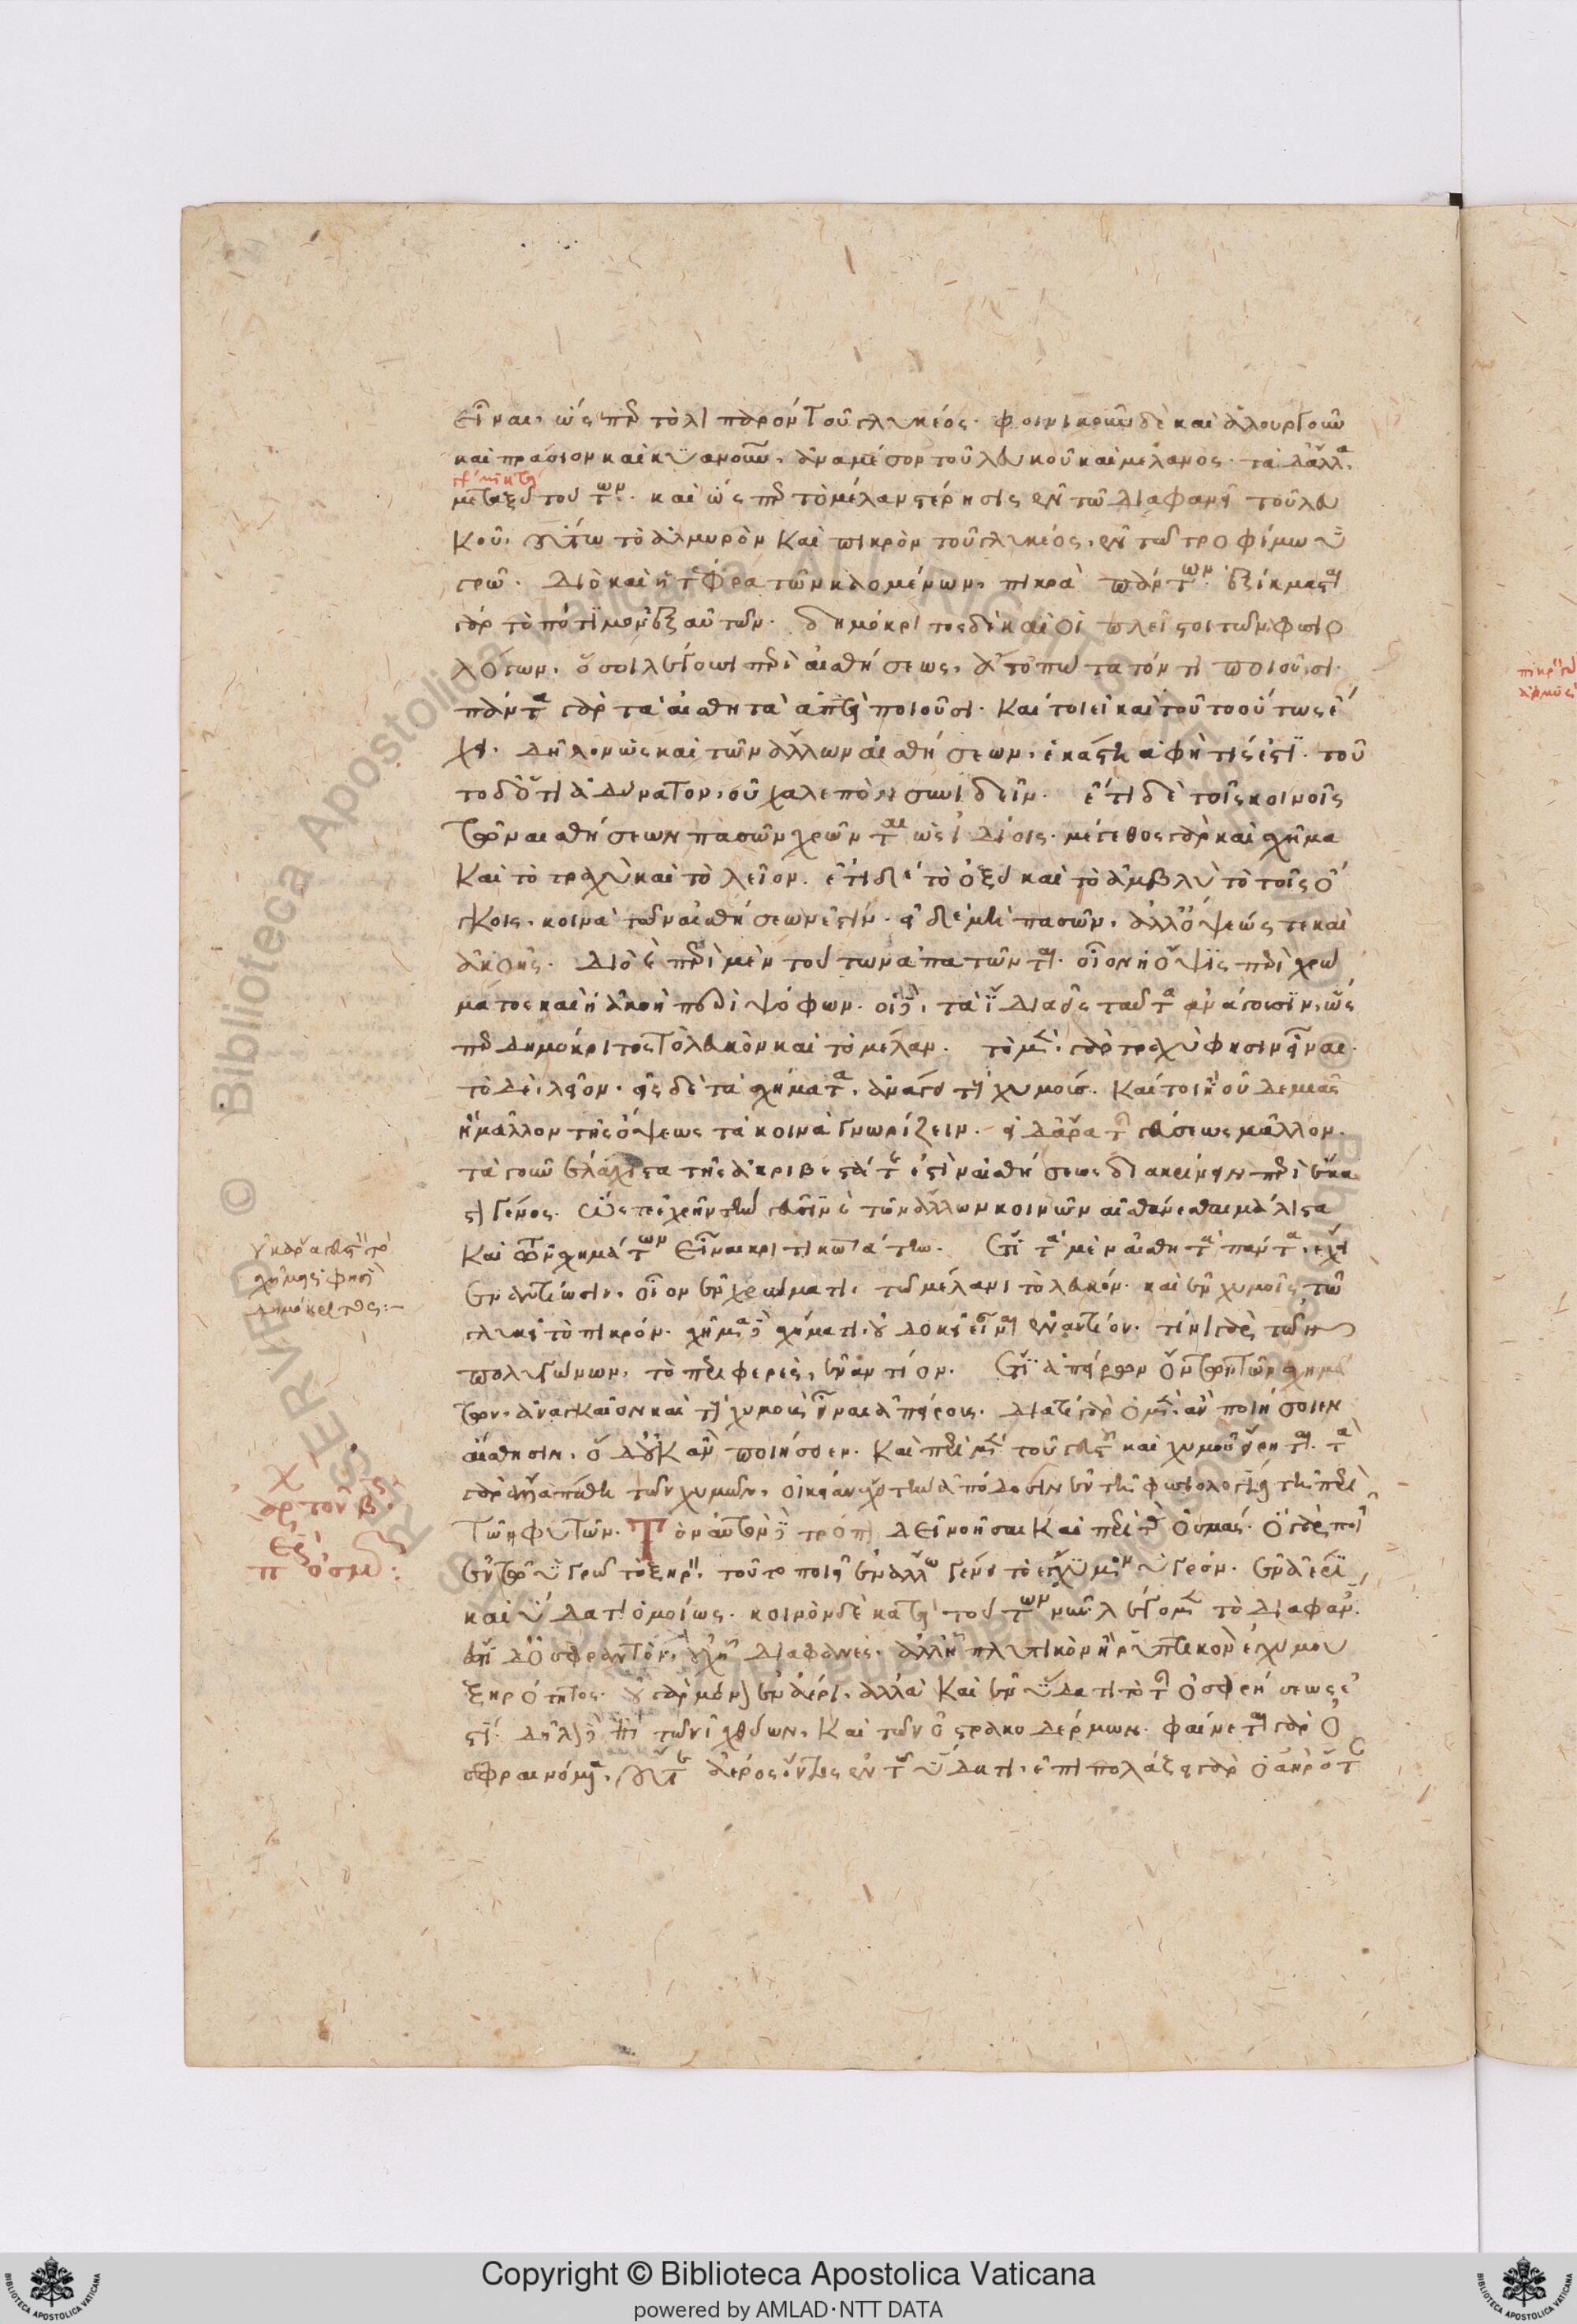 εἶναι, ὥσπερ τὸ λιπαρὸν τοῦ γλυκέος· φοινικοῦν δὲ καὶ ἁλουργοῦν
καὶ πράσινον καὶ κυανοῦν, ἀναμέσον τοῦ λευκοῦ καὶ μέλανος· τὰ δ' ἄλλα
μικτὰ
μεταξὺ τούτων. καὶ ὥσπερ τὸ μέλαν στέρησις ἐν τῶ διαφανεῖ τοῦ λευ
κοῦ, οὕτω τὸ ἁλμυρὸν καὶ πικρὸν τοῦ γλυκέος, ἐν τῶ τροφίμω ὑ
γρῶ. διὸ καὶ ἡ τέφρα τῶν καομένων, πικρὰ πάντων. ἐξίκμασται
γὰρ τὸ πότιμον ἐξ αὐτῶν. δημόκριτος δὲ καὶ οἱ πλεῖστοι τῶν φυσιο
λόγων, ὅσοι λέγουσι περὶ αἰσθήσεως, ἀτοπώτατόν τι ποιοῦσι.
πάντα γὰρ τὰ αἰσθητὰ ἁπτὰ ποιοῦσι. καίτοι εἰ καὶ τοῦτο οὕτως ἔ
χει, δῆλον ὡς καὶ τῶν ἄλλων αἰσθήσεων, ἑκάστη ἁφή τίς ἐστι. τοῦ
το δ' ὅτι ἀδύνατον, οὐ χαλεπὸν συνιδεῖν. ἔτι δὲ τοῖς κοινοῖς
τῶν αἰσθήσεων πασῶν χρῶνται ὡς ἰδίοις. μέγεθος γὰρ καὶ σχῆμα
καὶ τὸ τραχὺ καὶ τὸ λεῖον. ἔτι δὲ τὸ ὀξὺ καὶ τὸ ἀμβλὺ τὸ τοῖς ὄ
γκοις, κοινὰ τῶν αἰσθήσεών ἐστιν. εἰ δὲ μὴ πασῶν, ἀλλ' ὄψεώς τε καὶ
ἁφῆς. διὸ καὶ περὶ μὲν τούτων ἀπατῶνται. οἷον ἡ ὄψις περὶ χρώ
ματος καὶ ἡ ἀκοὴ περὶ ψόφων. οἱ δὲ, τὰ ἴδια εἰς ταῦτα ἀνάγουσιν, ὥσ
περ δημόκριτος τὸ λευκὸν καὶ τὸ μέλαν. τὸ μὲν γὰρ τραχὺ φησὶν εἶναι.
τὸ δὲ, λεῖον. εἰς δὲ τὰ σχήματα, ἀνάγει τοὺς χυμούς. καίτοι ἢ οὐδεμιᾶς
ἢ μᾶλλον τῆς ὄψεως τὰ κοινὰ γνωρίζειν. εἰ δ' ἄρα τῆς γεύσεως μᾶλλον.
τὰ γοῦν ἐλάχιστα τῆς ἀκριβεστάτης ἐστὶν αἰσθήσεως διακρίνειν περὶ ἕκα
στον γένος. ὥστε ἐχρῆν τὴν γεῦσιν καὶ τῶν ἄλλων κοινῶν αἰσθάνεσθαι μάλιστα
καὶ τῶν σχημάτων εἶναι κριτικωτάτην. ἔτι τὰ μὲν αἰσθητὰ πάντα, ἔχει
ἐναντίωσιν, οἷον ἐν χρώματι, τῶ μέλανι τὸ λευκόν. καὶ ἐν χυμοῖς τῶ
γλυκεῖ τὸ πικρόν. σχῆμα δὲ σχήματι, οὐ δοκεῖ εἶναι ἐναντίον. τίνι γὰρ τῶν
πολυγώνων, τὸ περιφερὲς, ἐναντίον. ἔτι ἀπείρων ὄντων τῶν σχημά
των, ἀναγκαῖον καὶ τοὺς χυμοὺς εἶναι ἀπείρους. διὰ τί γὰρ ὁ μὲν ἂν ποιήσοιεν
αἴσθησιν, ὁ δ' οὐκ ἂν ποιήσοιεν. καὶ περὶ μὲν τοῦ γευστοῦ καὶ χυμοῦ εἴρηται. τὰ
γὰρ ἄλλα πάθη τῶν χυμῶν, οἰκείαν ἔχει τὴν ἀπόδοσιν ἐν τῆ φυσιολογία τῆ περὶ
τῶν φυτῶν. Τὸν αὐτὸν δὲ τρόπον δεῖ νοῆσαι καὶ περὶ τὰς ὀσμάς. ὃ γὰρ ποιεῖ
ἐν τῶ ὑγρῶ τὸ ξηρόν, τοῦτο ποιεῖ ἐν ἄλλω γένει τὸ ἔγχυμον ὑγρόν. ἐν ἀέρι
καὶ ὕδατι ὁμοίως. κοινὸν δὲ κατὰ τούτων νῦν λέγομεν τὸ διαφανές.
ἔστι δ' ὀσφραντὸν, οὐχ ᾗ διαφανὲς, ἀλλ' ᾗ πλυτικὸν ἢ ῥυπτικὸν ἐγχύμου
ξηρότητος. οὐ γὰρ μόνον ἐν ἀέρι, ἀλλὰ καὶ ἐν ὕδατι τὸ τῆς ὀσφρήσεως ἐ
στί. δῆλον δὲ ἐπὶ τῶν ἰχθύων, καὶ τῶν ὀστρακοδέρμων. φαίνεται γὰρ ὀ
σφραινόμενα, οὔτε ἀέρος ὄντος ἐν τῶ ὕδατι. ἐπιπολάζει γὰρ ὁ ἀὴρ ὅτ
σχήματα φησὶ
δημόκριτος:-
χ
ἀρ τοῦ β
περὶ ὀσμῶν: